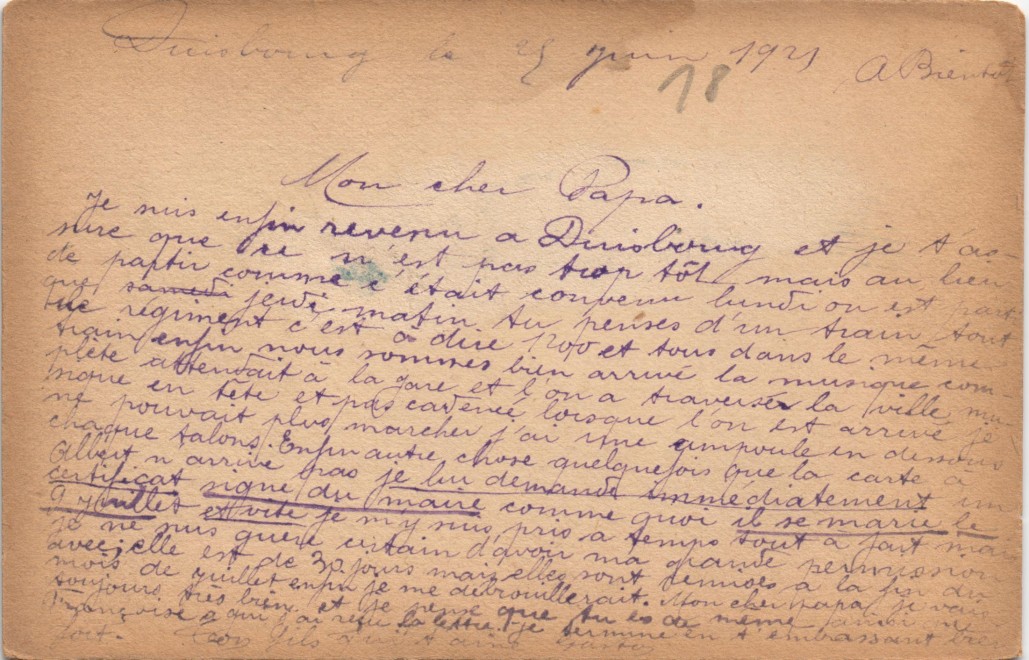 Duisbourg le 25 juin 1921
A Bientôt
18
Mon cher Papa.
Je suis enfin revenu a Duisbourg et je t'as-
sure que ce n'est pas trop tôt mais au lieu
de partir comme c'était convenu lundi on est part
que samedi jeudi matin. tu penses d'un train tout
le régiment c'est à dire 1200 et tous dans le même
train enfin nous sommes bien arrivé la musique com-
plète attendait à la gare et l'on a traverser la ville mu
sique en tête et pas cadencé lorsque l'on est arrivé je
ne pouvait plus marcher j'ai une ampoule en dessous
chaque talons. Enfin autre chose quelquefois que la carte a
Albert n'arrive pas je lui demande immédiatement un
certificat signé du maire comme quoi il se marie le
9 juillet et vite je m'y suis pris a temps tout a fait mais
je ne suis guère certain d'avoir ma grande permission
avec, elle est de 30 jours mais elles sont
à la fin du
mois de juillet enfin je me débrouillerait. Mon cher papa je vais
toujours très bien et je pense que tu es de même ainsi que
Françoise
j'ai reçu la lettre. je termine en t'embrassant bien
fort. Ton fils qui t'aime Gaston